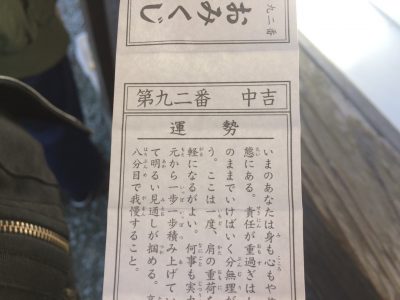 九二番
おみくじ
第九二番 中吉
運勢
いまのあなたは身も心もや
態にある。責任が重過ぎはし
のままでいけばいく分無理が
う。ここは一度、肩の重荷
軽になるがよい。何事も実力
元から一歩一歩積み上げてい
て明るい見通しが掴める。
八分目で我慢すること。